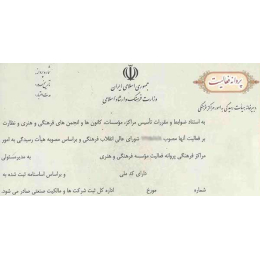 پروانه فعالیت
جمهوری اسلامی ایران
وزارت فرهنگ و ارشاد اسلامی
به استناد ضوابط و مقررات تأسیس مراکز، مؤسسات، کانون ها و انجمن های فرهنگی و هنری و نظارت
بر فعالیت آنها مصوب شورای عالی انقلاب فرهنگی و براساس مصوبه هیأت رسیدگی به امور
مراکز فرهنگی پروانه فعالیت مؤسسه فرهنگی و هنری به مدیرمسئولی
دارای کد ملی و براساس اساسنامه ثبت شده به
شماره مورخ اداره کل ثبت شرکت ها و مالکیت صنعتی صادر می شود.